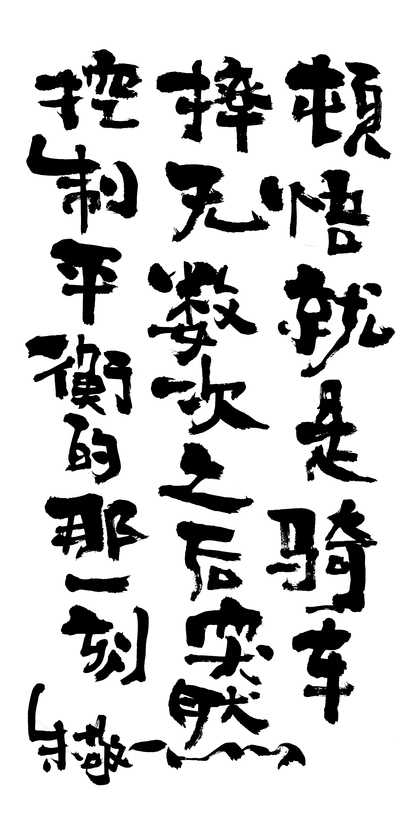 顿悟就是骑车
摔无数次之后突然
控制平衡的那一刻
朱敬一